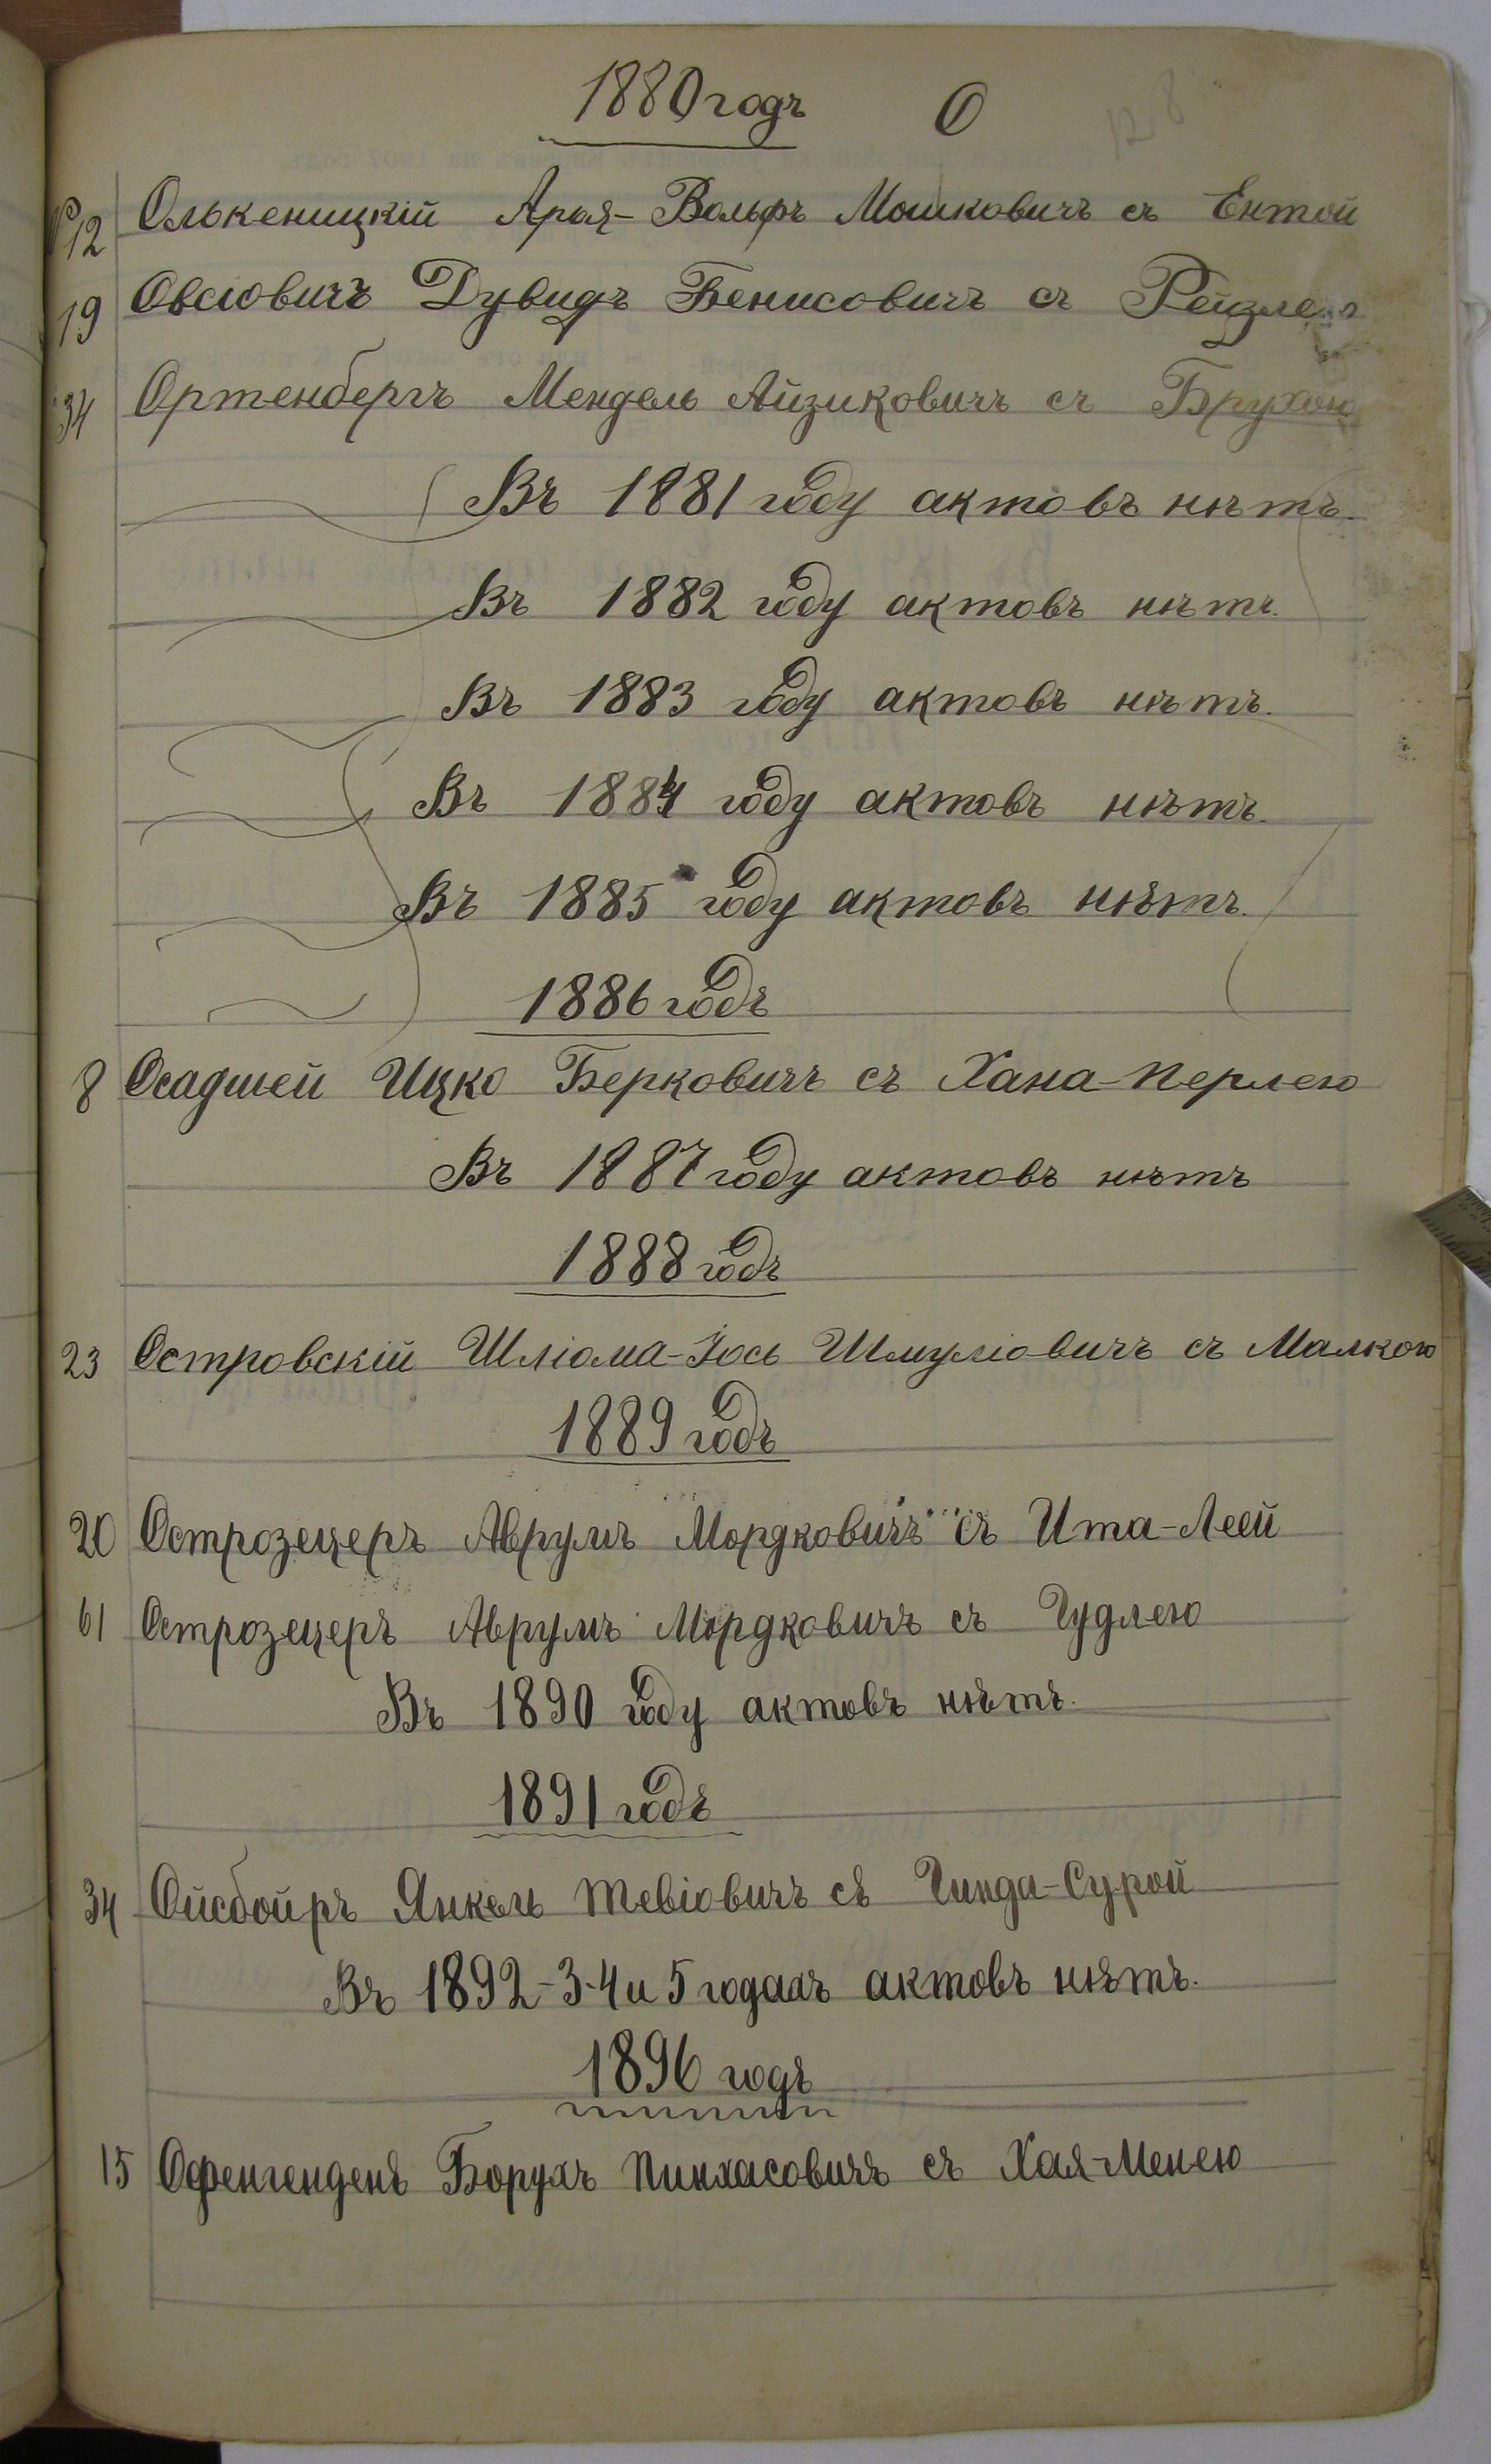 1880 годъ О 128
№ 12 Олькеницкій Арья-Вольфъ Мошковичъ съ Ентой
19 Овсіовичъ Дувидъ Бенисовичъ съ
34 Ортенбергъ Мендель Айзиковичъ съ Брухою
Въ 1881 году актовъ нѣтъ.
Въ 1882 году актовъ нѣтъ.
Въ 1883 году актовъ нѣтъ.
Въ 1884 году актовъ нѣтъ.
Въ 1885 году актовъ нѣтъ.
1886 годъ
8 Осадшей Ицко Берковичъ съ Хана-Перлею
Въ 1887 году актовъ нѣтъ
1888 годъ
23 Островскій Шліома-Іось Шмуліовичъ съ Малкою
1889 годъ
20 Острозецеръ Аврумъ Мордковичъ съ Ита-Леей
61 Острозецеръ Аврумъ Мордковичъ съ Гудлею
Въ 1890 году актовъ нѣтъ.
1891 годъ
34 Ойсбойръ Янкель Тевіовичъ съ Гинда-Сурой
Въ 1892-3-4 и 5 годахъ актовъ нѣтъ.
1896 годъ
15 Офенгенденъ Борухъ Пинхасовичъ съ Хая-Менею